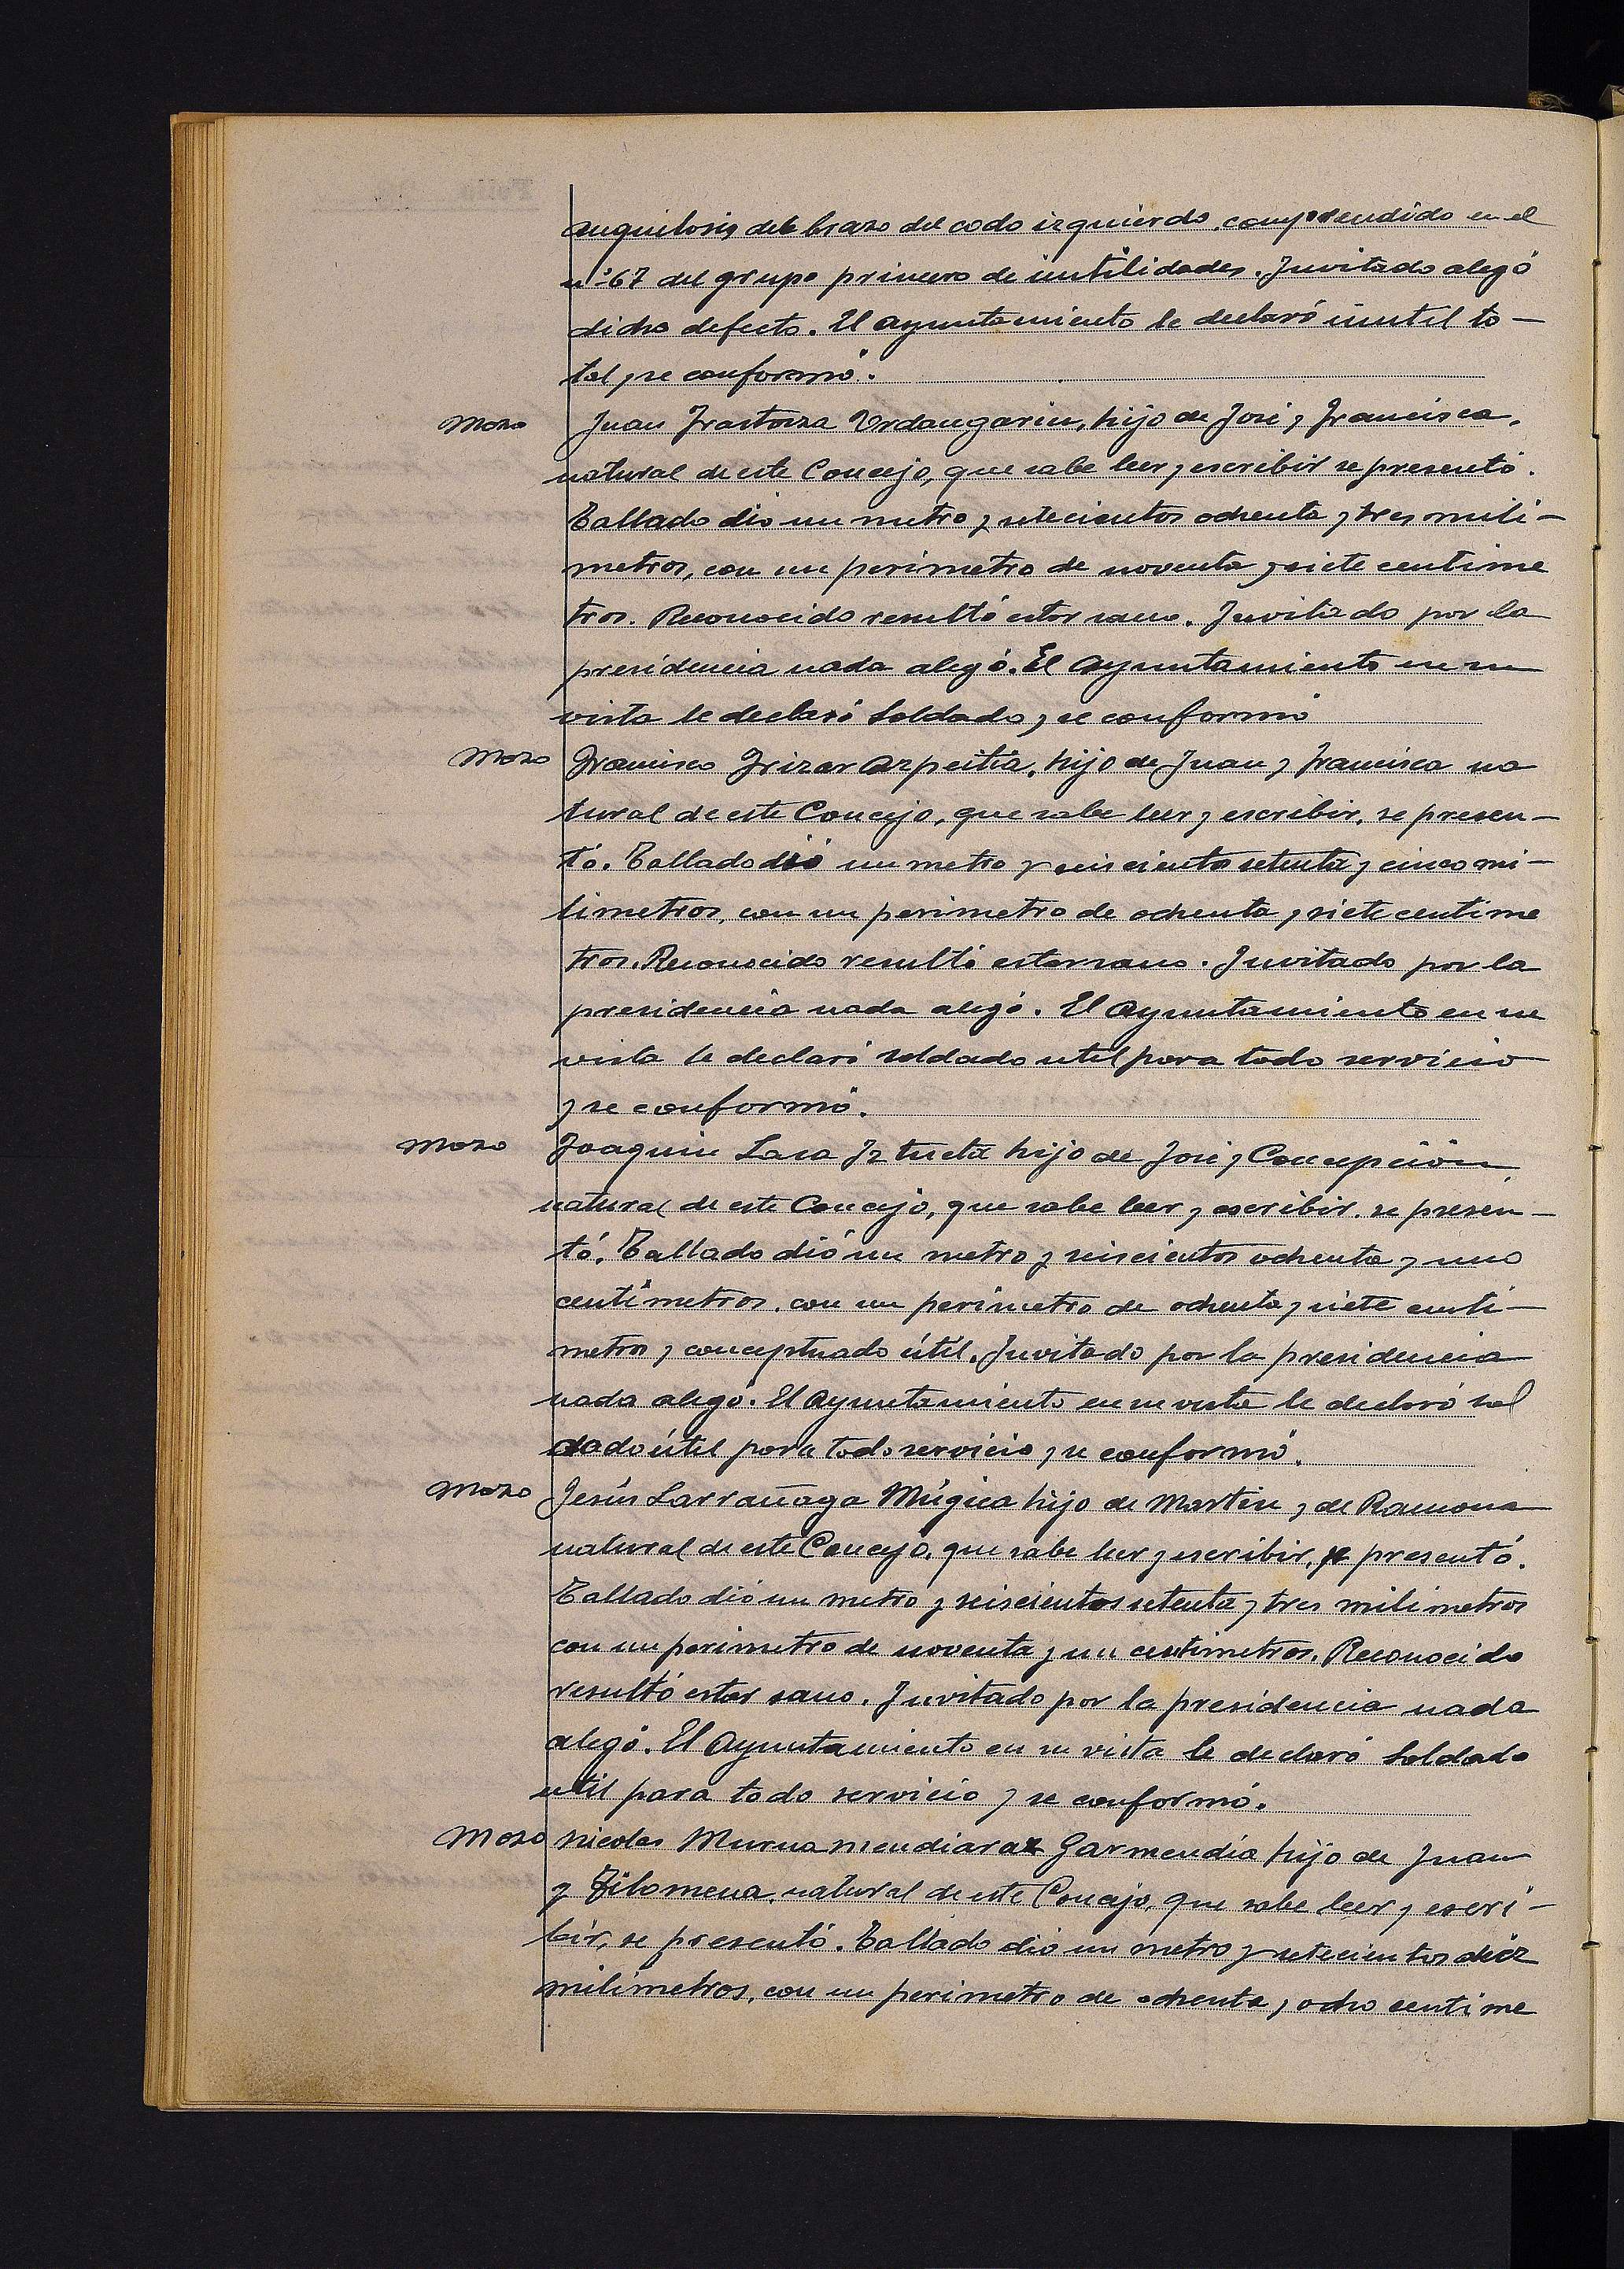 anquilosis del brazo del codo izquierdo, comprendido en el
nº 67 del grupo primero de inutilidades. Invitado alegó
dicho defecto. El Ayuntamiento le declaró inutil to-
tal y se conformó.
Mozo Juan Irastorza Urdangarin, hijo de José y Francisca,
natural de este Concejo, que sabe leer y escribir se presentó.
Tallado dio un metro y setecientos ochenta y tres mili-
metros, con un perimetro de noventa y siete centime
tros. Reconocido resultó estar sano. Invitado por la
presidencia nada alegó. El Ayuntamiento en su
vista le declaró soldado y se conformó
Mozo Francisco Irizar Azpeitia, hijo de Juan y Francisca na
tural de este Concejo, que sabe leer y escribir, se presen-
tó. Tallado dió un metro y seiscientos setenta y cinco mi-
limetros, con un perimetro de ochenta y siete centime
tros. Reconocido resultó estar sano. Invitado por la
presidencia nada alegó. El Ayuntamiento en su
vista le declaró soldado util para todo servicio
y se conformó.
Mozo Joaquin Lasa Iztueta hijo de José y Concepción
natural de este Concejo, que sabe leer y escribir, se presen-
tó. Tallado dió un metro y seiscientos ochenta y uno
centimetros, con un perimetro de ochenta y siete centi-
metros y conceptuado útil. Invitado por la presidencia
nada alegó. El Ayuntamiento en su vista le declaró sol
dado útil para todo servicio y se conformó.
Mozo Jesús Larrañaga Múgica hijo de Martin y de Ramona
natural de este Concejo, que sabe leer y escribir, se presentó.
Tallado dió un metro y seiscientos setenta y tres milimetros
con un perimetro de noventa y un centimetros. Reconocido
resultó estar sano. Invitado por la presidencia nada
alegó. El Ayuntamiento en su vista le declaró soldado
util para todo servicio y se conformó.
Mozo Nicolas Murua mendiaraz Garmendia hijo de Juan
y Filomena, natural de este Concejo, que sabe leer y escri-
bir, se presentó. Tallado dio un metro y setecientos diez
milimetros, con un perimetro de ochenta y ocho centime